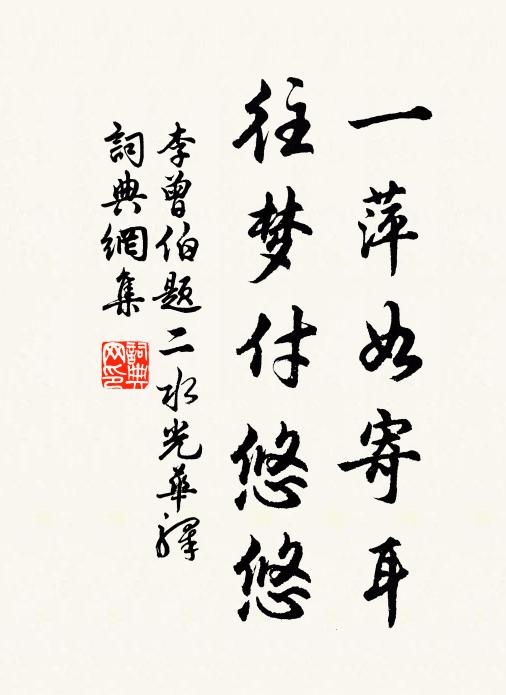 一萍如寄耳
往梦付悠悠
李曾伯题二水光華驛
詞典網集
詞典网印